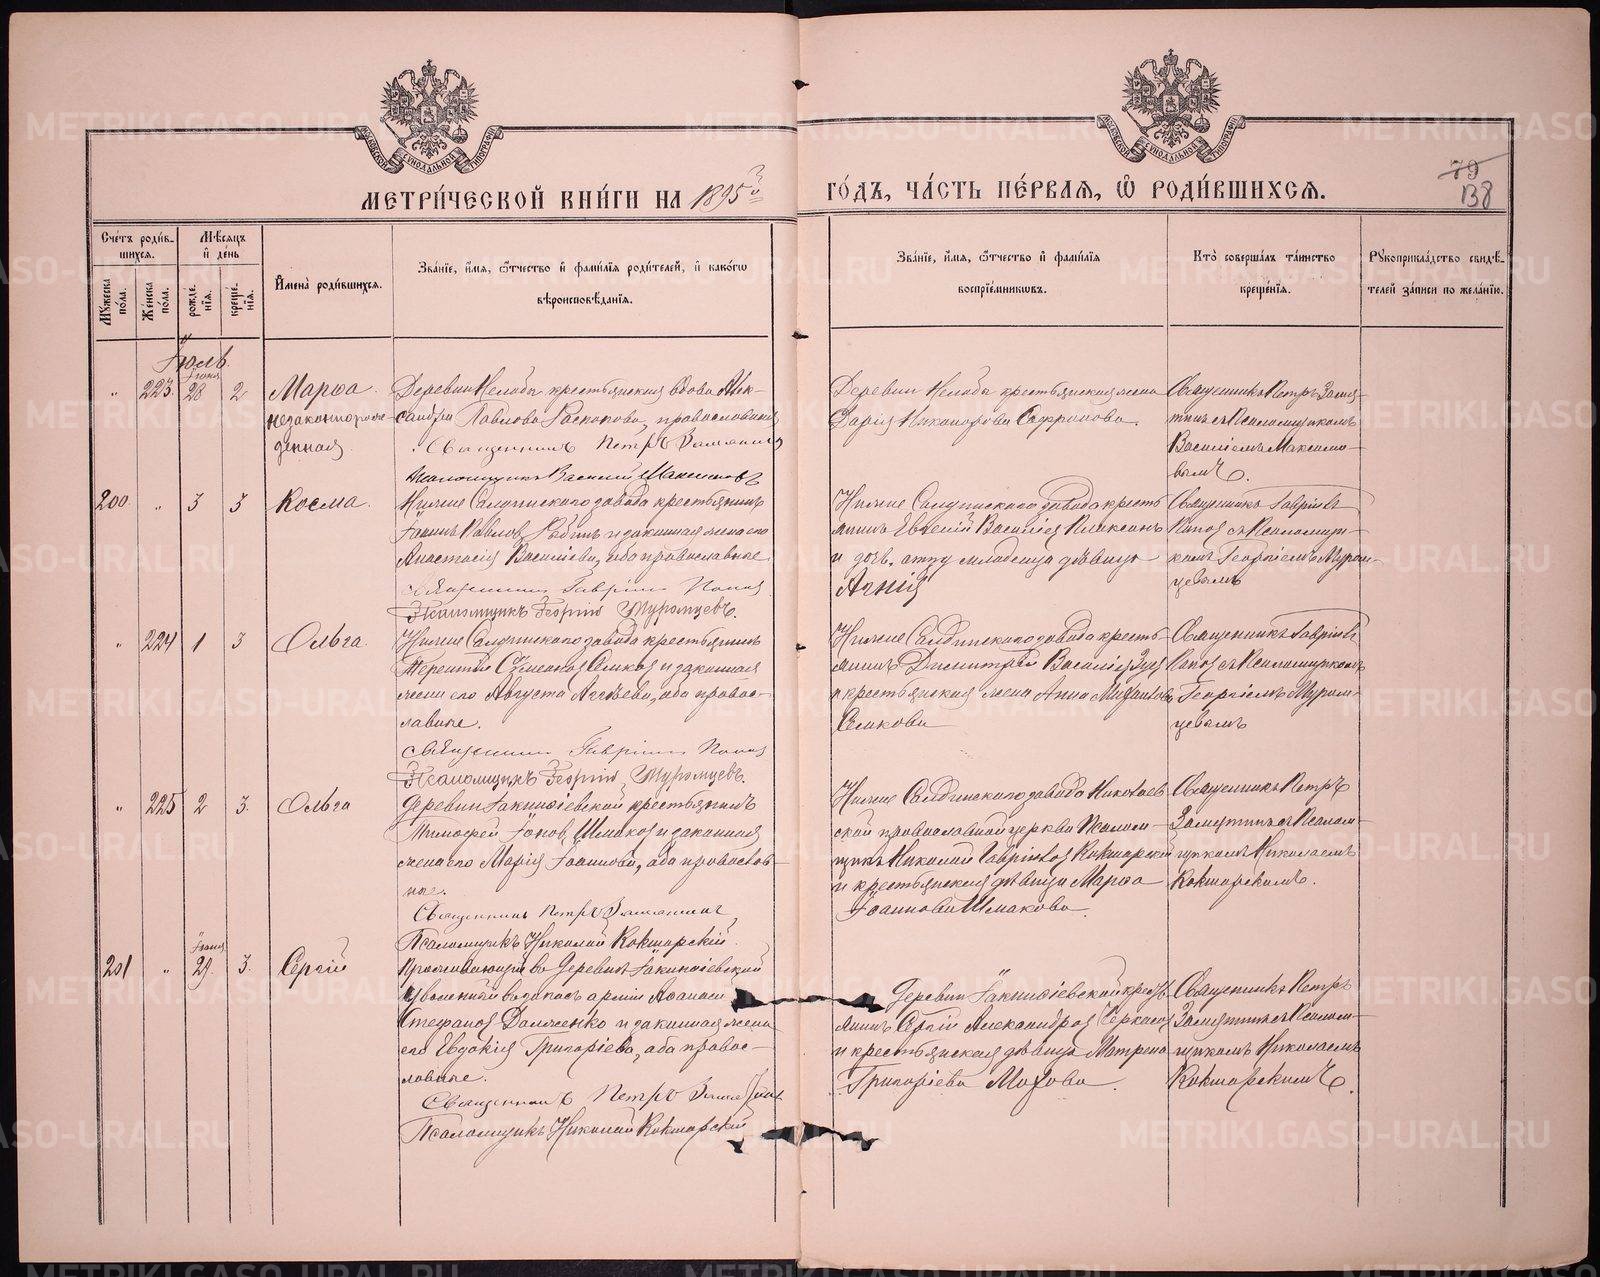 МЕТРИ́ЧЕСКОЙ КНИ́ГИ НА 1895й
ГО́ДЪ, ЧА́СТЬ ПЕ́РВАЯ, Ѽ РОДИ́ВШИХСЯ.
79
138
Сче́тъ роди́в-
шихся.
Мꙋ́жеска пола.
Же́нска пола.
Мѣ́сяцъ и҆ де́нь
рожде́нїя.
креще́нїя.
И҆мена̀ роди́вшихся.
Зва́нїе, и҆́мя, ѻ҆́тчество и҆ фами́лїя роди́телей, и҆ како́гѡ
вѣроисповѣ́данїя.
Зва́нїе, и҆́мя, ѻ҆́тчество и҆ фами́лїя
воспрїе́мникѡвъ.
Кто̀ соверша́лъ та́инство
креще́нїя.
Рꙋкоприкла́дство свидѣ́-
телей за́писи по жела́нїю.
Іюль
" 223 Іюня 28 2 Марѳа
незаконнорож-
денная
Деревни Нелоба крестьянская вдова Алек-
сандра Павлова Распопова, православная
Священникъ Петръ Замятинъ
Псаломщикъ Василій Максимовъ
Деревни Нелоба крестьянская жена
Дарія Никанорова Сафронова.
Священникъ Петръ Замя-
тинъ съ Псаломщикомъ
Василіемъ Максимо-
вымъ.
200 " 3 3 Косма
Нижне Салдинского завода крестьянинъ
Іоаннъ Павловъ и законная жена его
Анастасія Васильева, оба православные
Священникъ Гавріилъ Поповъ
Псаломщикъ Георгій Муромцевъ.
Нижне Салдинского завода кресть
янинъ Евгеній Василіевъ
и дочь младенца дѣвица
Агнія
Священникъ Гавріилъ
Поповъ съ Псаломщи-
комъ Георгіемъ Муром-
цевымъ
" 224 1 3 Ольга
Нижне Салдинского завода крестьянинъ
Терентій Сѵмеоновъ и законная
жена его Августа, оба правос-
лавные.
Священникъ Гавріилъ Поповъ
Псаломщикъ Георгій Муромцевъ.
Нижне Салдинского завода кресть-
янинъ Димитрій Василіевъ
и крестьянская жена Анна Михаилова
Священникъ Гавріилъ
Поповъ съ Псаломщикомъ
Георгіемъ Муром-
цевымъ
" 225 2 3. Ольга
Деревни Іакинѳіевской крестьянинъ
Тимофей Шмаковъ и законная
жена его Марія Іоаннова, оба православ-
ные.
Священникъ Петръ Замятинъ
Псаломщикъ Николай Кокшарскій.
Нижне Салдинского завода Николаев-
ской православной церкви Псалом-
щикъ Николай Гавріиловъ Кокшарскій
и крестьянская дѣвица Марѳа
Іоаннова Шмакова.
Священникъ Петръ
Замятинъ съ Псалом-
щикомъ Николаемъ
Кокшарскимъ.
201 " Іюня 29. 3. Сергій
Проживающій въ Деревнѣ Іакинѳіевской
уволенный въ запасъ арміи
Стефановъ Долженко и законная жена
его Евдокія Григоріева, оба правос-
лавные.
Священникъ Петръ Замятинъ
Псаломщикъ Николай Кокшарскій
Деревни Іакинѳіевской кресть
янинъ Сергій Александровъ Черкасовъ
и крестьянская дѣвица Матрена
Григоріева Махова.
Священникъ Петръ
Замятинъ съ Псалом-
щикомъ Николаемъ
Кокшарскимъ.
METRIKI.GASO-URAL.RU